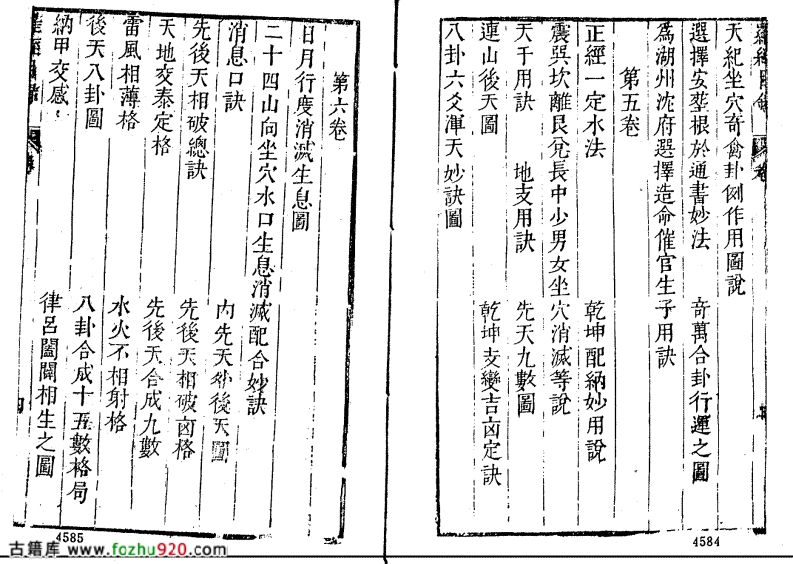 天紀坐穴奇禽卦例作用圖說
選擇安塟根於通書妙法 奇萬合卦行運之圖
爲湖州沈府選擇造命催官生子用訣
第五卷
正經一定水法 乾坤配納妙用說
震巽坎離艮兌長中少男女坐穴消滅等說
天干用訣 地支用訣 先天九數圖
連山後天圖 乾坤支變吉凶定訣
八卦六爻渾天妙訣圖
4584
第六卷
日月行度消滅生息圖
二十四山向坐穴水口生息消滅配合妙訣
消息口訣 內先天外後天圖
先後天相破總訣 先後天相破凶格
天地交泰定格 先後天合成九數
雷風相薄格 水火不相射格
後天八卦圖 八卦合成十五數格局
納甲交感 律呂闔闢相生之圖
4585
古籍库 www.fozhu920.com